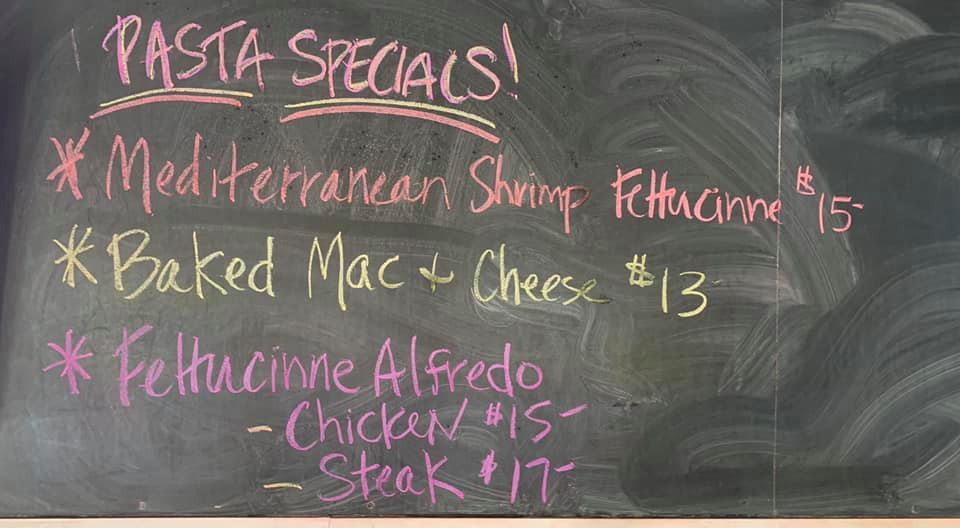 PASTA SPECIALS!
* Mediterranean Shrimp Fettucinne $15-
* Baked Mac + Cheese $13-
* Fettucinne Alfredo
- Chicken $15-
- Steak $17-